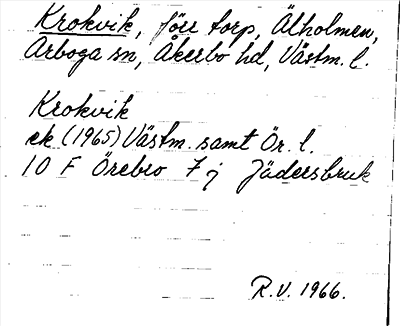 Krokvik, förr torp, Älholmen,
Arboga sn, Åkerbo hd, Västm. l.
Krokvik
ek. (1965) Västm. samt Ör. l.
10 F Örebro 7 j Jädersbruk
R.V. 1966.